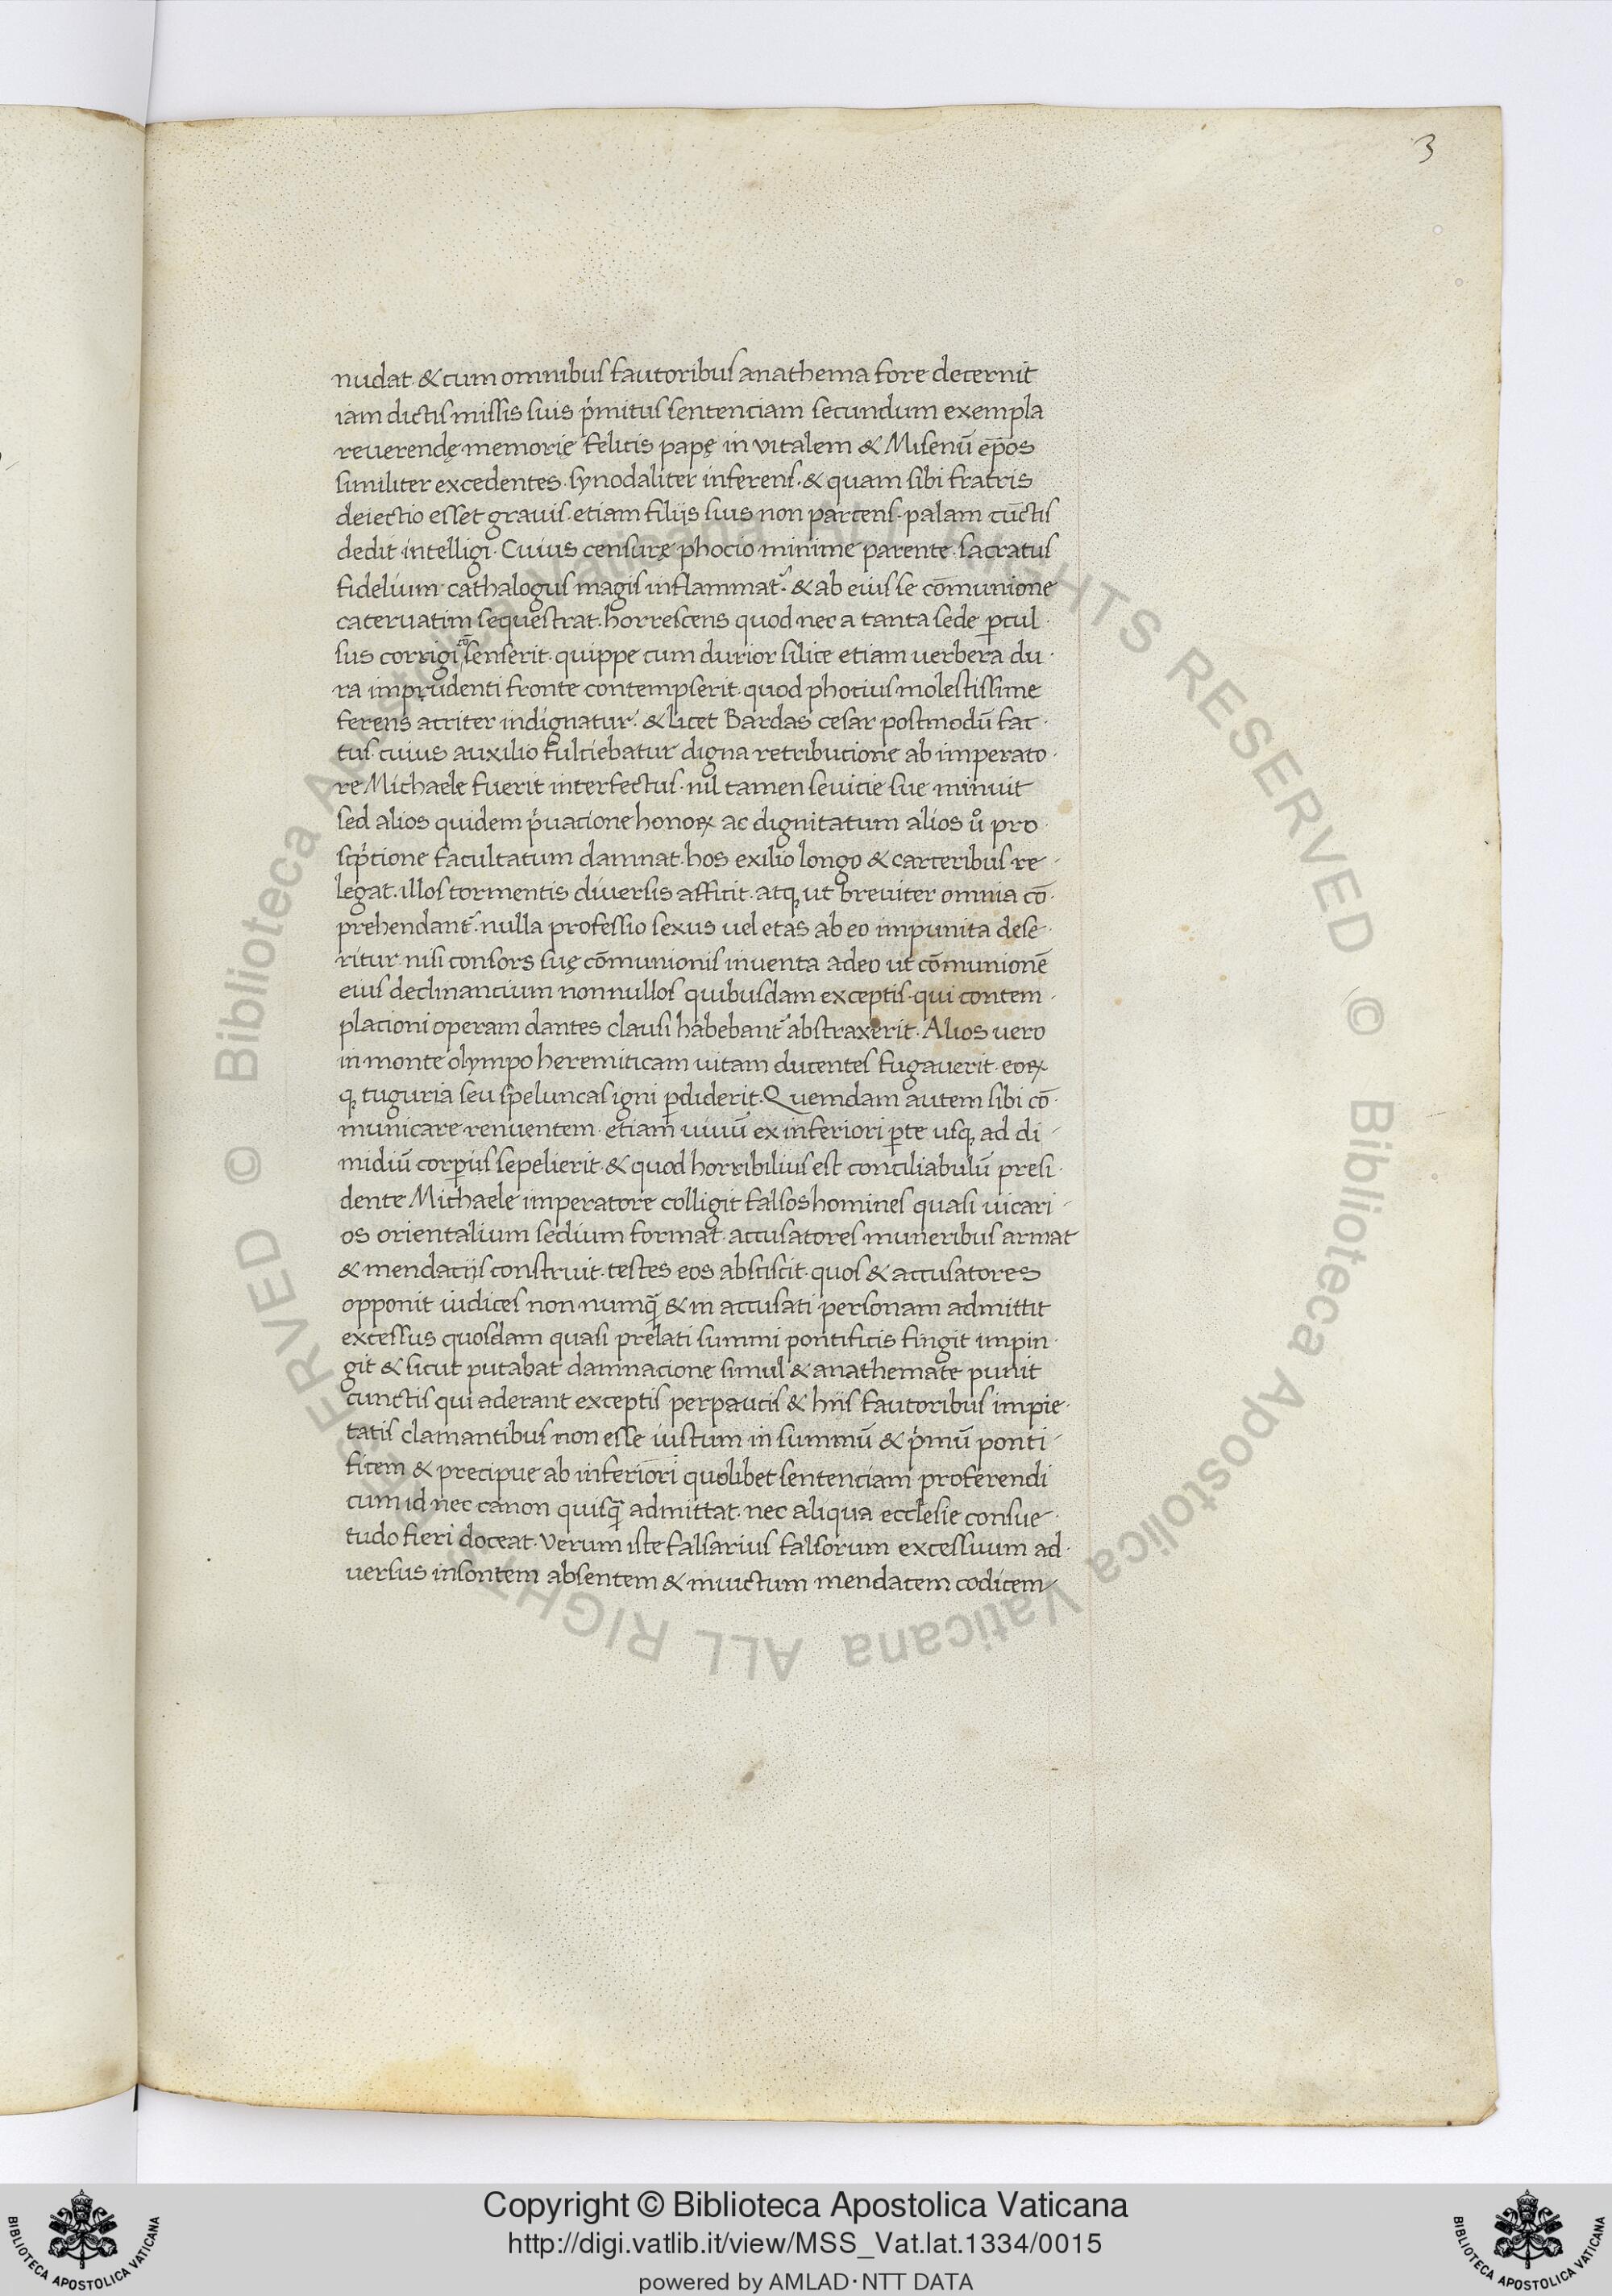 3
nudat · & cum omnibus fautoribus anathema fore decernit
iam dictis missis suis p̾mitus sentenciam secundum exempla
reuerendę memorię felicis papę in vitalem & Misenū ep̄os
similiter excedentes · synodaliter inferens · & quam sibi fratris
deiectio esset grauis · etiam filijs suis non parcens · palam cūctis
dedit intelligi · Cuius censurę phocio minime parente · sacratus
fidelium cathalogus magis inflammat᷑ · & ab eius se cōmunione
cateruatim sequestrat · horrescens quod nec a tanta sede ꝑcul ·
sus corrigi senserit · quippe cum durior silice etiam uerbera du ·
ra imprudenti fronte contempserit · quod photius molestissime
ferens acriter indignatur · & licet Bardas cesar postmodū fac ·
tus · cuius auxilio fulciebatur digna retributione ab imperato ·
re Michaele fuerit interfectus · nil tamen seuicie sue minuit
sed alios quidem p̾uacione honoꝝ ac dignitatum alios u̾o pro ·
scp̾tione facultatum damnat · hos exilio longo & carceribus re -
legat · illos tormentis diuersis afficit · atqꝫ ut breuiter omnia cō ·
prehendant᷑ · nulla professio sexus uel etas ab eo impunita dese ·
ritur nisi consors suę cōmunionis inuenta adeo ut cōmunionē
eius declinancium nonnullos quibusdam exceptis · qui contem ·
placioni operam dantes clausi habebant᷑ abstraxerit · Alios uero
in monte olympo heremiticam uitam ducentes fugauerit · eoꝝ
qꝫ tuguria seu speluncas igni ꝑdiderit · Quemdam autem sibi cō ·
municare renuentem · etiam uiuū ex inferiori ꝑte usqꝫ ad di -
midiū corpus sepelierit · & quod horribilius est conciliabulū presi ·
dente Michaele imperatore colligit falsos homines quasi uicari -
os orientalium sedium format · accusatores muneribus armat
& mendacijs construit · testes eos absciscit · quos & accusatores
opponit iudices non numq̄ & in accusati personam admittit
excessus quosdam quasi prelati summi pontificis fingit impin ·
git & sicut putabat damnacione simul & anathemate punit
cunctis qui aderant exceptis perpaucis & hijs fautoribus impie ·
tatis clamantibus non esse iustum in summū & p̾mū ponti -
ficem & precipue ab inferiori quolibet sentenciam proferendi
cum id nec canon quisq̄ admittat · nec aliqua ecclesie consue -
tudo fieri doceat · Verum iste falsarius falsorum excessuum ad ·
uersus insontem absentem & inuictum mendacem codicem
Copyright © Biblioteca Apostolica Vaticana
http://digi.vatlib.it/view/MSS_Vat.lat.1334/0015
powered by AMLAD · NTT DATA
BIBLIOTECA APOSTOLICA VATICANA
BIBLIOTECA APOSTOLICA VATICANA
© Biblioteca Apostolica Vaticana ALL RIGHTS RESERVED © Biblioteca Apostolica Vaticana ALL RIGHTS RESERVED